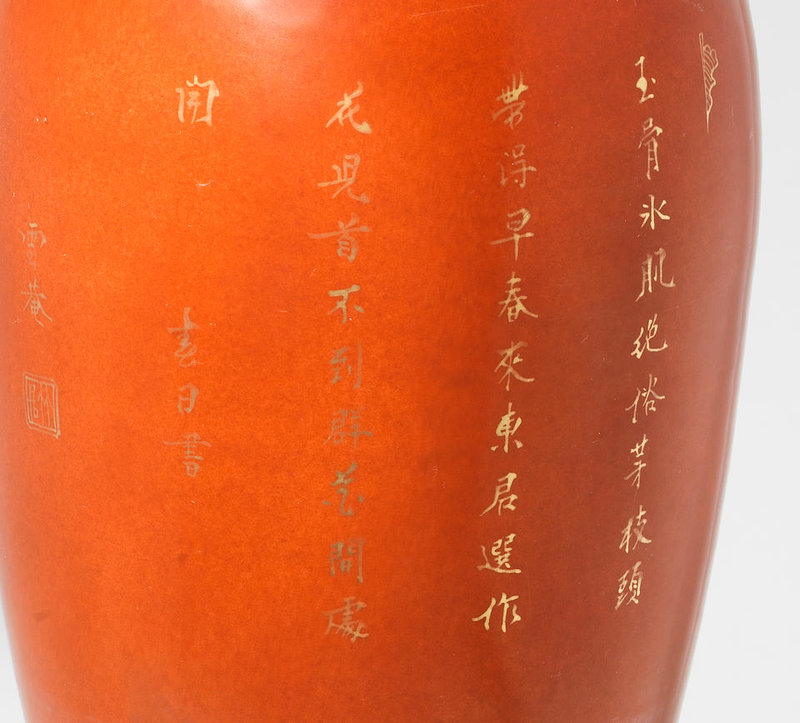 玉骨氷肌絶俗芽枝頭
帶得早春來東君選作
花児首不到群花開處
開
春日書
雪菴